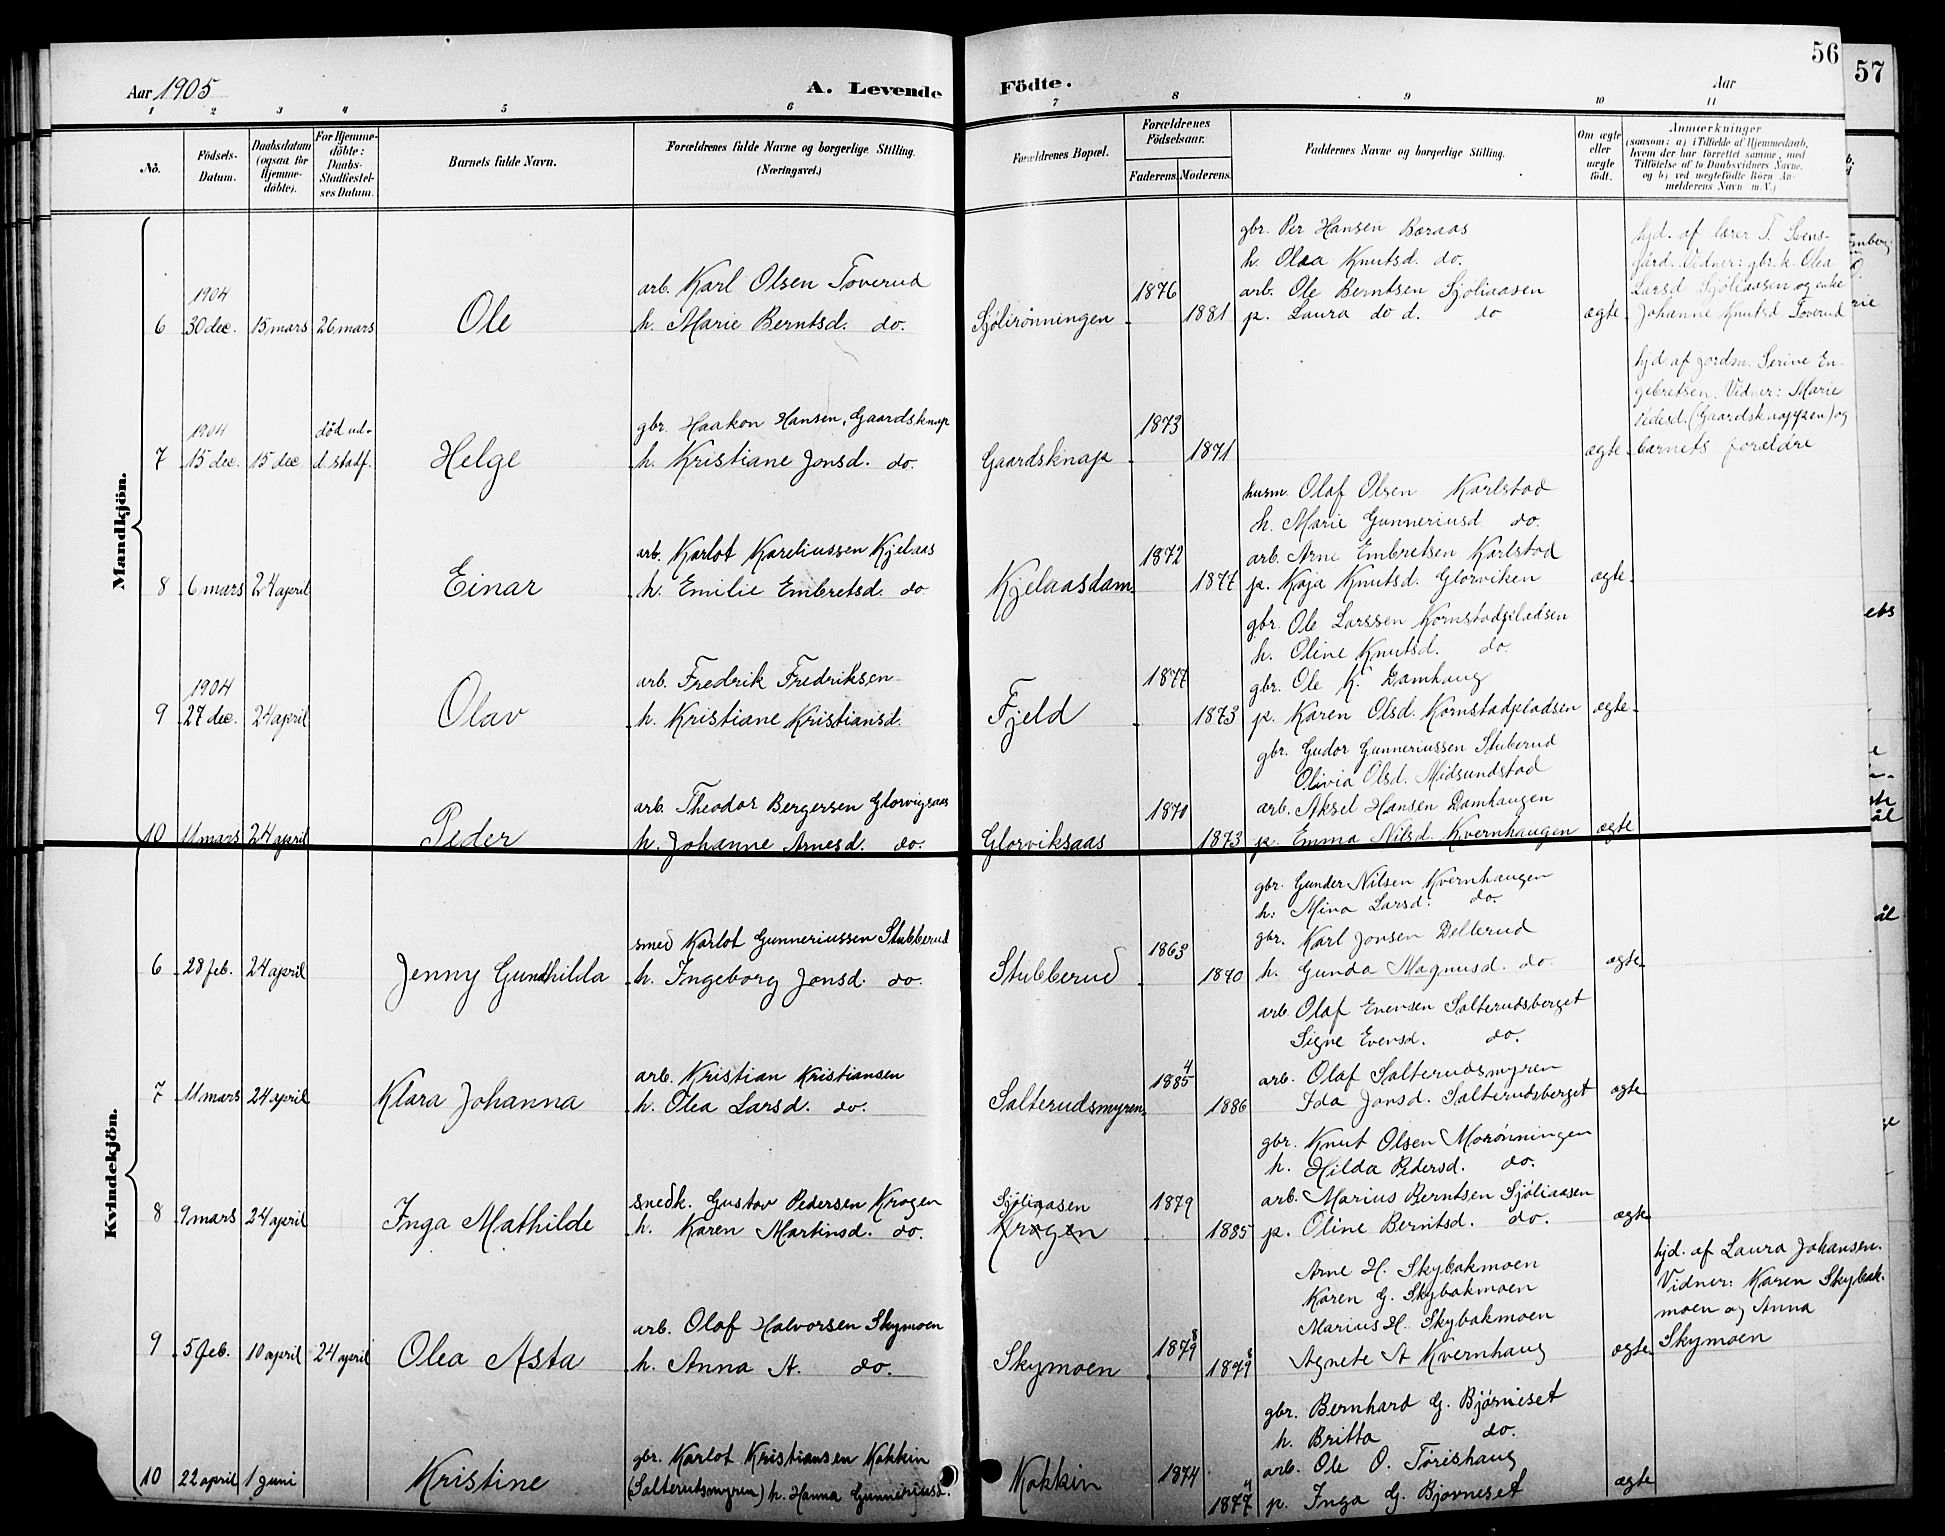 56
57
Aar 1905
A. Levende Födte.
Aar
1 2 3 4 5 6 7 8 9 10 11
No.
Födsels-Datum.
Daabsdatum (ogsaa for Hjemme-döbte).
For Hjemme-döbte: Daabs-Stadfæstel-ses Datum.
Barnets fulde Navn.
Forældrenes fulde Navne og borgerlige Stilling. (Næringsvei.)
Forældrenes Bopæl.
Forældrenes Födselsaar.
Faderens. Moderens.
Faddernes Navne og borgerlige Stilling.
Om ægte eller uægte födt.
Anmærkninger
(saasom: a) i Tilfælde af Hjemmedaab, hvem der har forrettet samme, med Tilföielse af to Daabsvidners Navne, og b) ved uægtefödte Börn An-melderens Navn m. V.)
Mandkjön.
gbr. Per Hansen Baraas
h. Olea Knutsd. do.
arb. Karl Olsen Toverud
1904
1876
arb. Ole Berntsen Sjøliaasen
6 30 dec. 15 mars 26 mars Ole h. Marie Berntsd. do. Sjølirønningen 1881 p. Laura do d. do ægte
hjd. af lærer T. Svens-
gård. Vidner: gbr.k. Olea
Larsd Sjøliaasen og enke
Johanne Knutsd. Toverud
gbr. Haakon Hansen, Gaardsknap
1904
død ud.
1873
7 15 dec. 15 dec. d. stadf. Helge h. Kristiane Jonsd. do. Gaardsknap 1871 ægte
hjd af jordm. Serine En-
gebretsen. Vidner: Marie
Pedesd. (Gaardsknappen) og
barnets forældre
husm. Olaf Olsen Karlstad
h. Marie Gunneriusd do.
arb. Karlot Kareliussen Kjelaas
1872
arb. Arne Embretsen Karlstad
8 6 mars 24 april Einar h. Emilie Embretsd. do Kjelaasdam 1877 p. Kaja Knutsd. Glorviken ægte
gbr. Ole Larssen Kornstadpladsen
h. Oline Knutsd. do.
1904
arb. Fredrik Fredriksen
1877
gbr. Ole K. Damhaug
9 27 dec. 24 april Olav h. Kristiane Kristiansd. Fjeld 1873 p. Karen Olsd. Kornstadpladsen ægte
gbr. Gudor Gunneriussen Stuberud
Olivia Olsd. Midsundstad
arb. Theodor Bergersen Glorvigsaas
1870
arb. Aksel Hansen Damhaugen
10 11 mars 24 april Peder h. Johanne Arnesd. do. Glorviksaas 1873 p. Emma Nilsd. Kvernhaugen ægte
Kvindekjön.
gbr. Gunder Nilsen Kvernhaugen
h. Mina Larsd. do.
smed Karlot Gunneriussen Stubberud
1863
gbr. Karl Jonsen Delterud
6 28 feb. 24 april Jenny Gundhilda h. Ingeborg Jonsd. do. Stubberud 1870 h. Gunda Magnusd. do ægte
arb. Olaf Evensen Salterudsberget
Signe Evensd. do.
arb. Kristian Kristiansen
4
1885
arb. Olaf Salterudsmyren
7 11 mars 24 april Klara Johanna h. Olea Larsd. do. Salterudsmyren 1886 Ida Jonsd. Salterudsberget ægte
gbr. Knut Olsen Morønningen
h. Hilda Pedersd. do.
snedk. Gustav Pedersen Krogen
Sjøliaasen
1879
arb. Marius Berntsen Sjøliaasen
8 9 mars 24 april Inga Mathilde h. Karen Martinsd. do. Krogen 1885 p. Oline Berntsd. do. ægte
Arne H. Skybakmoen
Karen G. Skybakmoen
arb. Olaf Halvorsen Skymoen
8
1879
Marius H. Skybakmoen
9 5 feb. 10 april 24 april Olea Asta h. Anna A. do. Skymoen 1879 Agnete A Kvernhaug ægte
hjd. af Laura Johansen.
Vidner: Karen Skybak-
moen og Anna
Skymoen
gbr. Bernhard G. Bjørneset
h. Britta do.
gbr. Karlot Kristiansen Kokkin
1874
arb. Ole O. Tørishaug
10 22 april 1 juni Kristine (Salterudsmyren) h. Hanna Gunneriusd. Kokkin 1877 p. Inga G. Bjørneset ægte